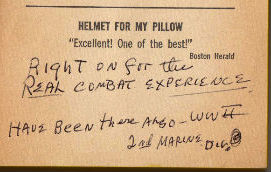 HELMET FOR MY PILLOW
"Excellent! One of the best!"
Boston Herald
Right on for the
REAL COMBAT EXPERIENCE
HAVE BEEN there ALSO - WW II
2nd MARINE DIV.